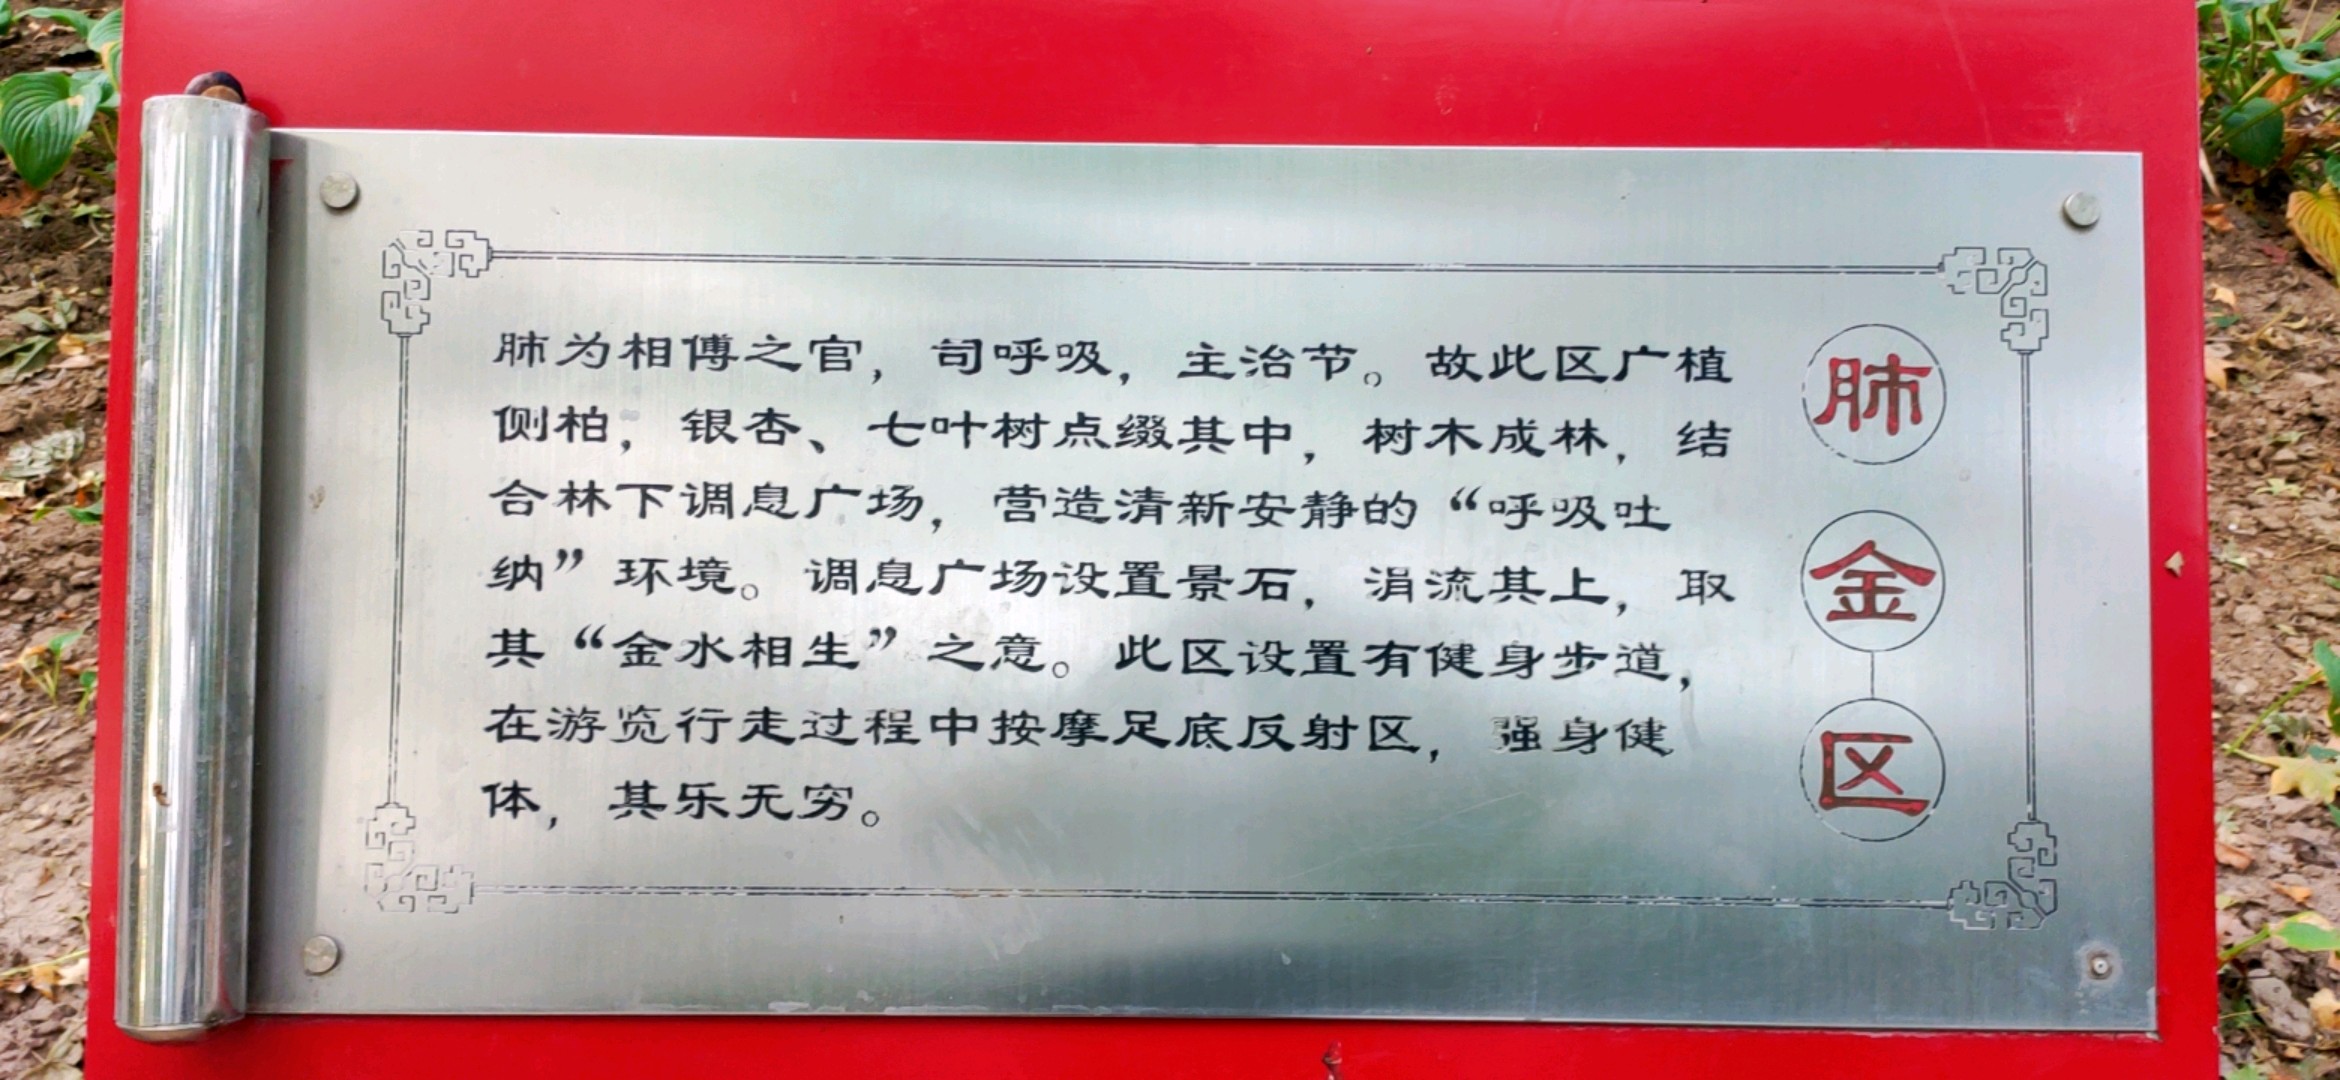 肺为相傅之官，司呼吸，主治节。故此区广植
侧柏；银杏、七叶树点缀其中，树木成林，结
合林下调息广场，营造清新安静的“呼吸吐
纳”环境。调息广场设置景石，涓流其上，取
其“金水相生”之意。此区设置有健身步道，
在游览行走过程中按摩足底反射区，强身健
体，其乐无穷。
肺金区